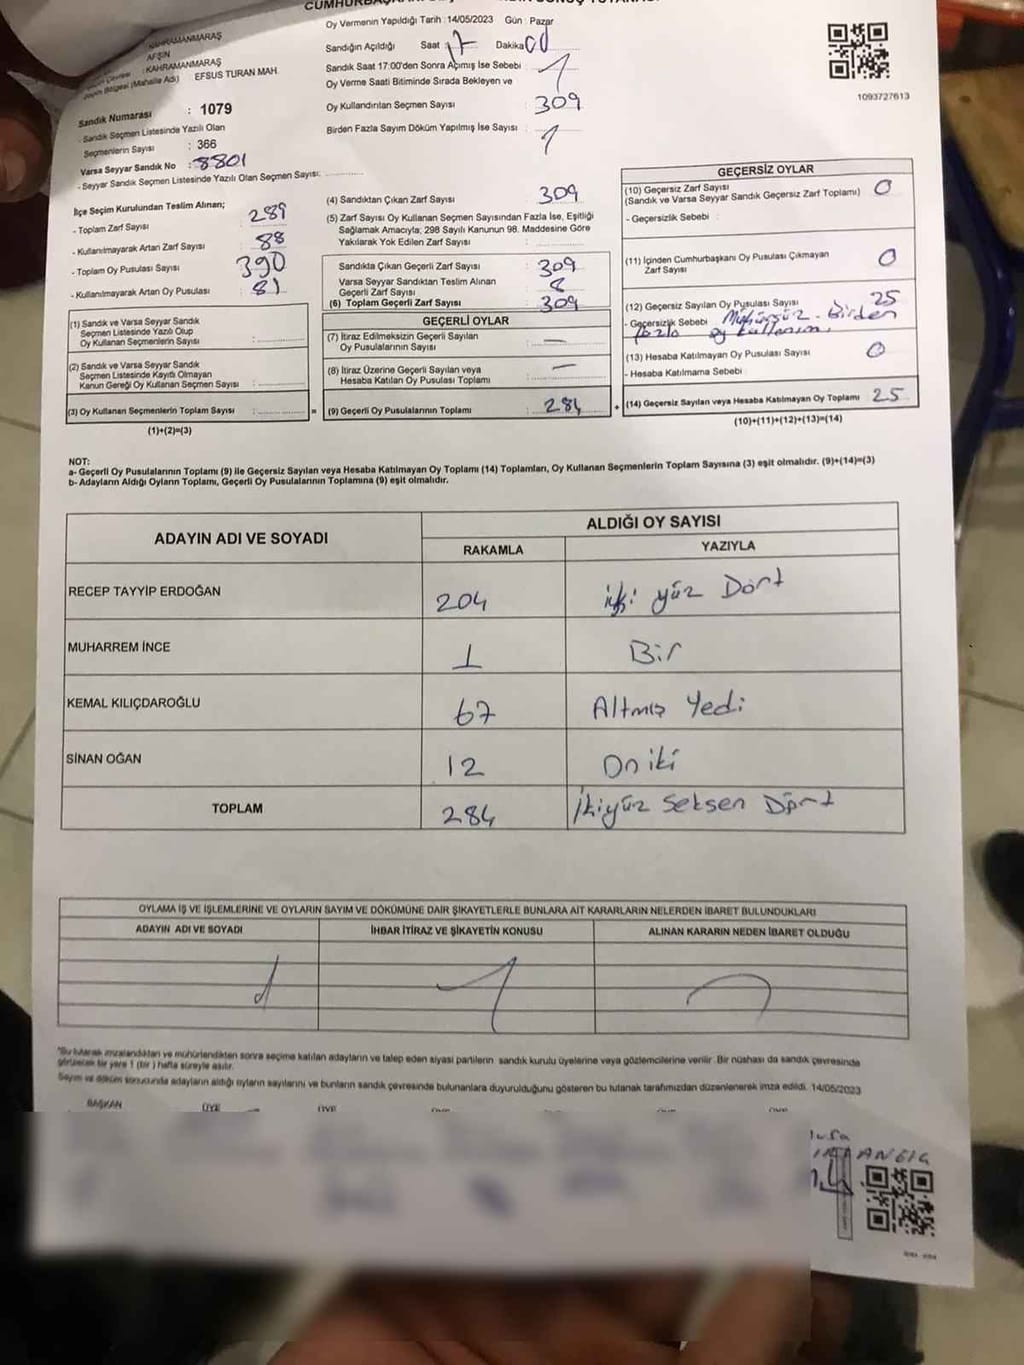 Oy Vermenin Yapıldığı Tarih : 14/05/2023 Gün : Pazar
KAHRAMANMARAŞ
AFŞİN
: KAHRAMANMARAŞ
(Mahalle Adı) : EFSUS TURAN MAH.
Sandık Numarası : 1079
- Sandık Seçmen Listesinde Yazılı Olan
Seçmenlerin Sayısı : 366
Varsa Seyyar Sandık No : 8801
- Seyyar Sandık Seçmen Listesinde Yazılı Olan Seçmen Sayısı:
İlçe Seçim Kurulundan Teslim Alınan;
- Toplam Zarf Sayısı : 289
- Kullanılmayarak Artan Zarf Sayısı : 88
- Toplam Oy Pusulası Sayısı : 390
- Kullanılmayarak Artan Oy Pusulası : 81
(1) Sandık ve Varsa Seyyar Sandık
Seçmen Listesinde Yazılı Olup
Oy Kullanan Seçmenlerin Sayısı :
(2) Sandık ve Varsa Seyyar Sandık
Seçmen Listesinde Kayıtlı Olmayan
Kanun Gereği Oy Kullanan Seçmen Sayısı :
(3) Oy Kullanan Seçmenlerin Toplam Sayısı :
(1)+(2)=(3)
Sandığın Açıldığı Saat : 17 Dakika 00
Sandık Saat 17:00'den Sonra Açımış İse Sebebi :
Oy Verme Saati Bitiminde Sırada Bekleyen ve
Oy Kullandırılan Seçmen Sayısı : 309
Birden Fazla Sayım Döküm Yapılmış İse Sayısı :
(4) Sandıktan Çıkan Zarf Sayısı : 309
(5) Zarf Sayısı Oy Kullanan Seçmen Sayısından Fazla İse, Eşitliği
Sağlamak Amacıyla; 298 Sayılı Kanunun 98. Maddesine Göre
Yakılarak Yok Edilen Zarf Sayısı :
Sandıkta Çıkan Geçerli Zarf Sayısı : 309
Varsa Seyyar Sandıktan Teslim Alınan
Geçerli Zarf Sayısı :
(6) Toplam Geçerli Zarf Sayısı : 309
GEÇERLİ OYLAR
(7) İtiraz Edilmeksizin Geçerli Sayılan
Oy Pusulalarının Sayısı : —
(8) İtiraz Üzerine Geçerli Sayılan veya
Hesaba Katılan Oy Pusulası Toplamı : —
= (9) Geçerli Oy Pusulalarının Toplamı : 284 +
1093727613
GEÇERSİZ OYLAR
(10) Geçersiz Zarf Sayısı : 0
(Sandık ve Varsa Seyyar Sandık Geçersiz Zarf Toplamı)
- Geçersizlik Sebebi :
(11) İçinden Cumhurbaşkanı Oy Pusulası Çıkmayan
Zarf Sayısı : 0
(12) Geçersiz Sayılan Oy Pusulası Sayısı : 25
- Geçersizlik Sebebi : Mühürsüz - Birden
fazla oy kullanım
(13) Hesaba Katılmayan Oy Pusulası Sayısı : 0
- Hesaba Katılmama Sebebi :
(14) Geçersiz Sayılan veya Hesaba Katılmayan Oy Toplamı : 25
(10)+(11)+(12)+(13)=(14)
NOT:
a- Geçerli Oy Pusulalarının Toplamı (9) ile Geçersiz Sayılan veya Hesaba Katılmayan Oy Toplamı (14) Toplamları, Oy Kullanan Seçmenlerin Toplam Sayısına (3) eşit olmalıdır. (9)+(14)=(3)
b- Adayların Aldığı Oyların Toplamı, Geçerli Oy Pusulalarının Toplamına (9) eşit olmalıdır.
ADAYIN ADI VE SOYADI ALDIĞI OY SAYISI
RAKAMLA YAZIYLA
RECEP TAYYİP ERDOĞAN 204 iki yüz Dört
MUHARREM İNCE 1 Bir
KEMAL KILIÇDAROĞLU 67 Altmış Yedi
SİNAN OĞAN 12 On iki
TOPLAM 284 İkiyüz Seksen Dört
OYLAMA İŞ VE İŞLEMLERİNE VE OYLARIN SAYIM VE DÖKÜMÜNE DAİR ŞİKAYETLERLE BUNLARA AİT KARARLARIN NELERDEN İBARET BULUNDUKLARI
ADAYIN ADI VE SOYADI İHBAR İTİRAZ VE ŞİKAYETİN KONUSU ALINAN KARARIN NEDEN İBARET OLDUĞU
"Bu tutanak imzalandıktan ve mühürlendikten sonra seçime katılan adayların ve talep eden siyasi partilerin sandık kurulu üyelerine veya gözlemcilerine verilir. Bir nüshası da sandık çevresinde
görülecek bir yere 1 (bir) hafta süreyle asılır.
Sayım ve döküm sonucunda adayların aldığı oyların sayılarını ve bunların sandık çevresinde bulunanlara duyurulduğunu gösteren bu tutanak tarafımızdan düzenlenerek imza edildi. 14/05/2023
BAŞKAN ÜYE ÜYE